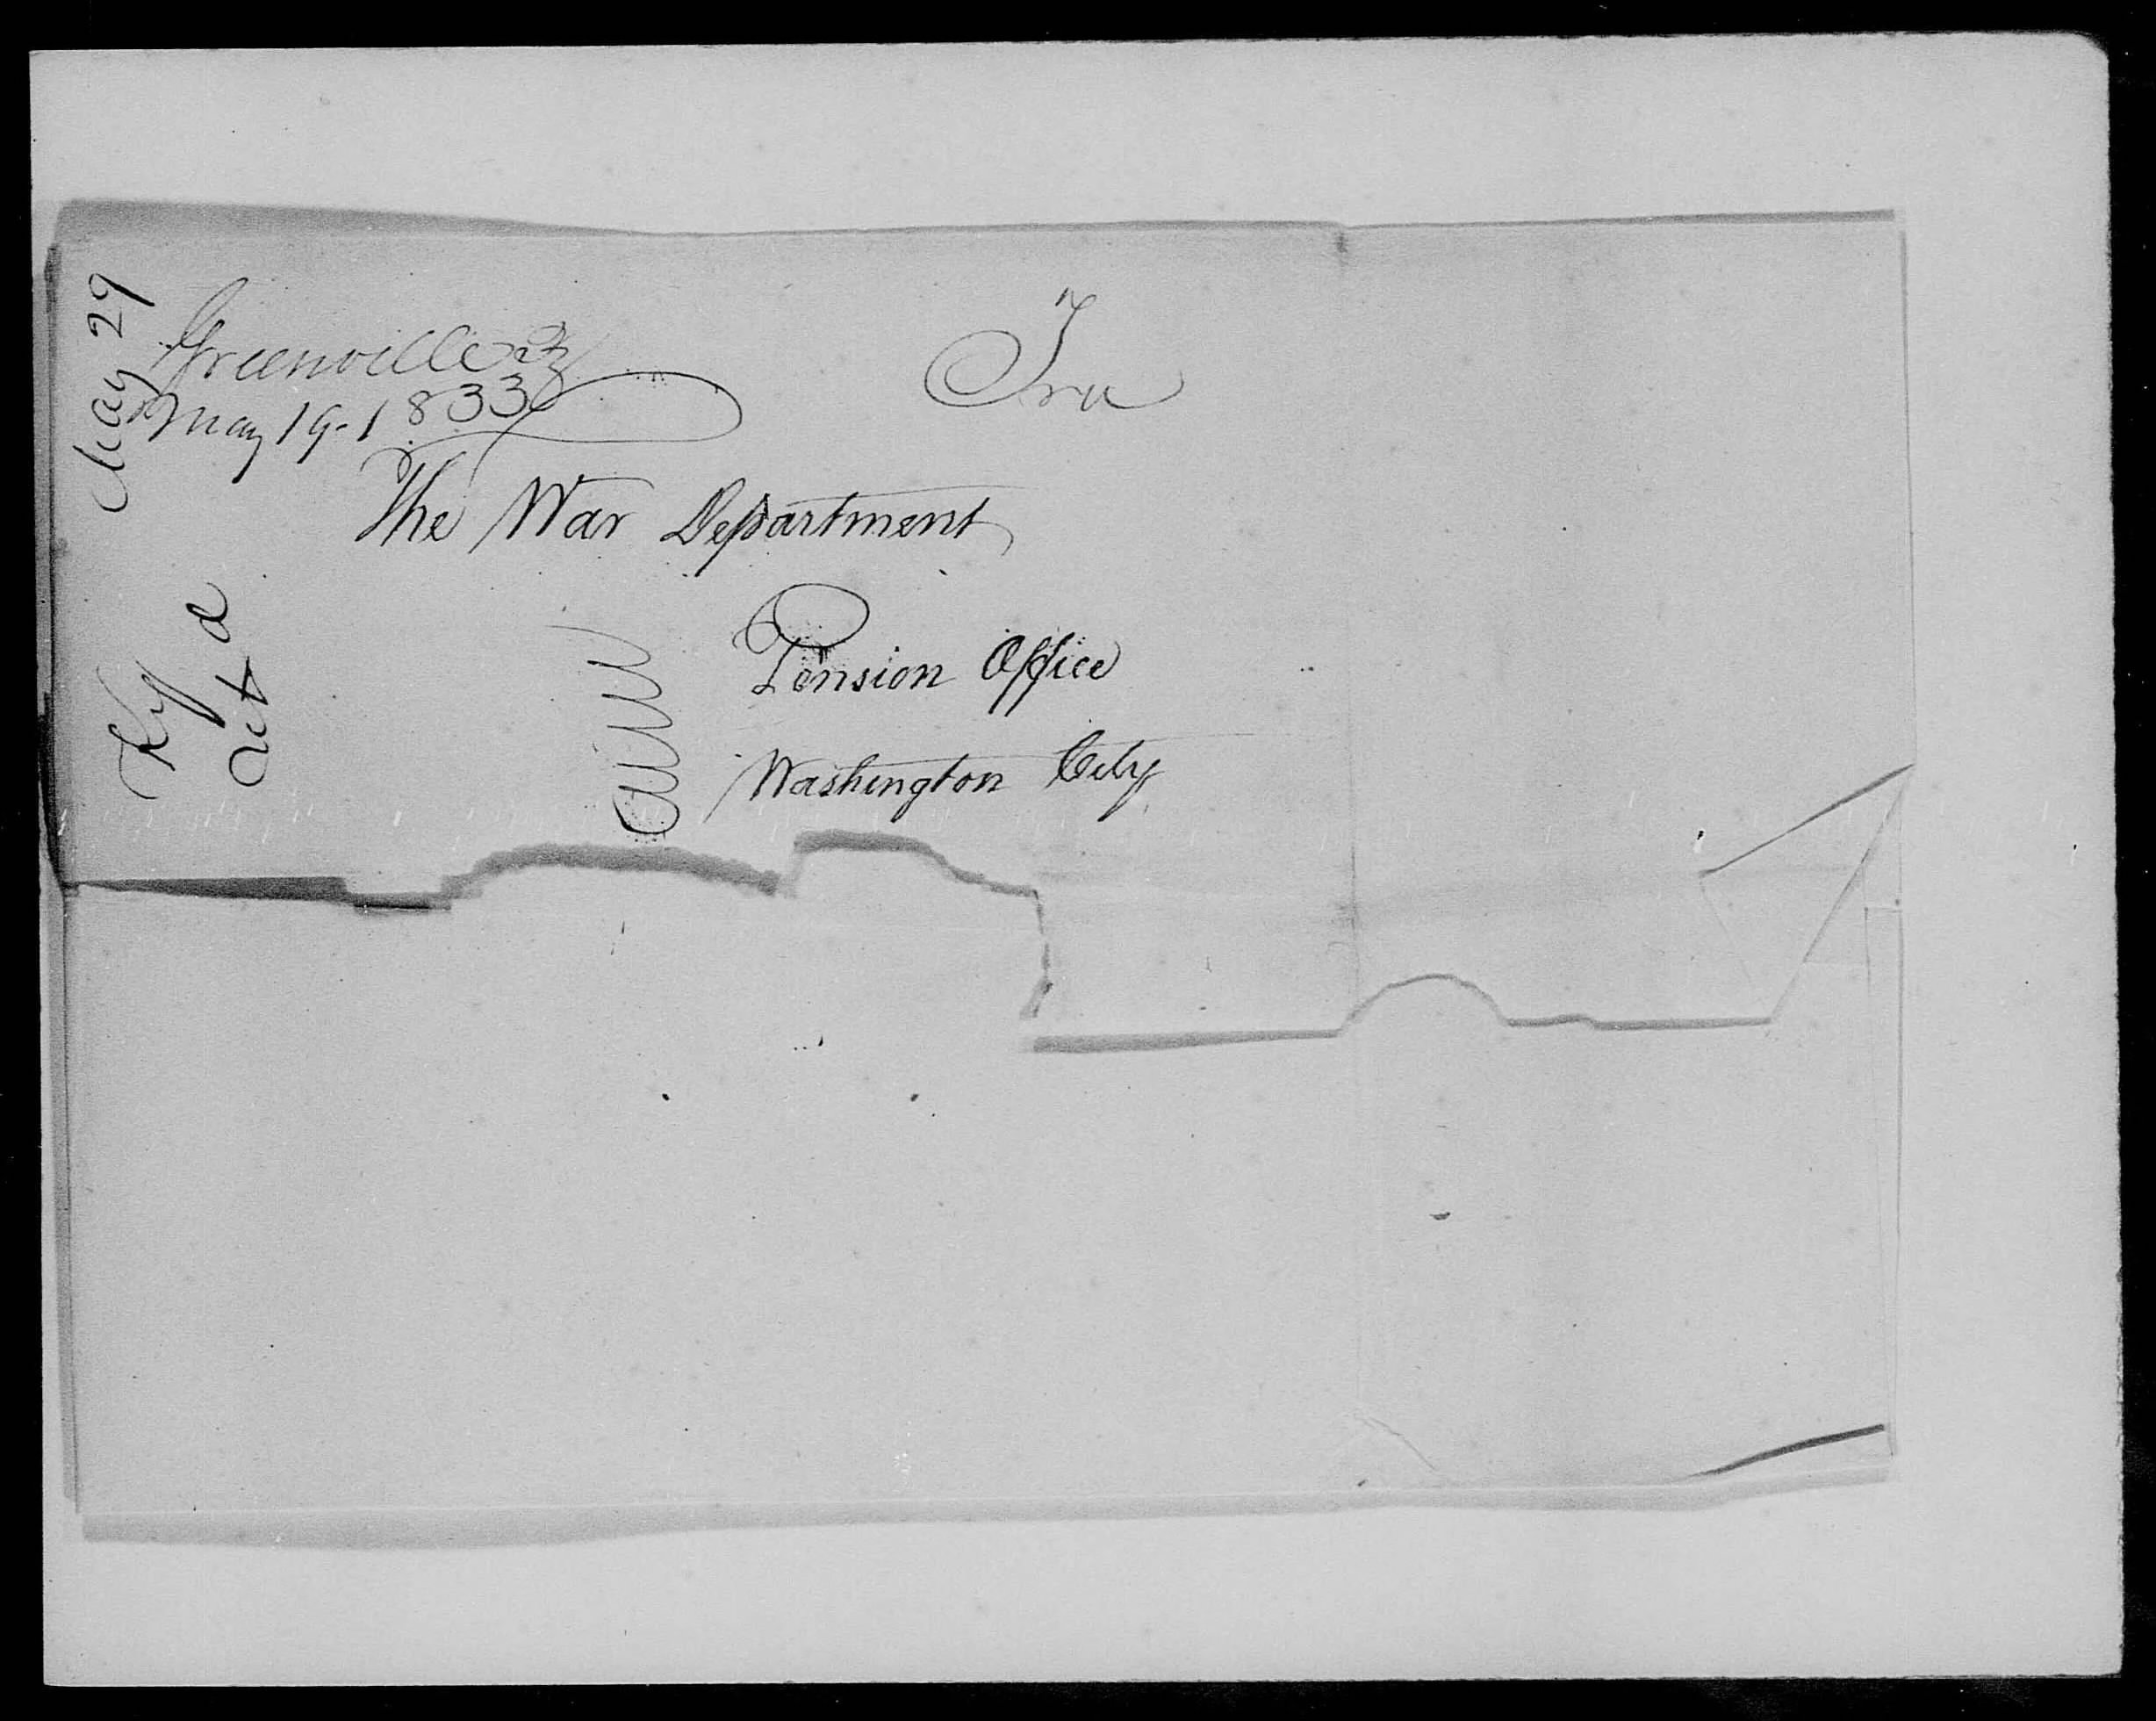 Greenville Ky
May 19-1833
Fre
The War Department
Pension Office
Washington City
May 29
Ky